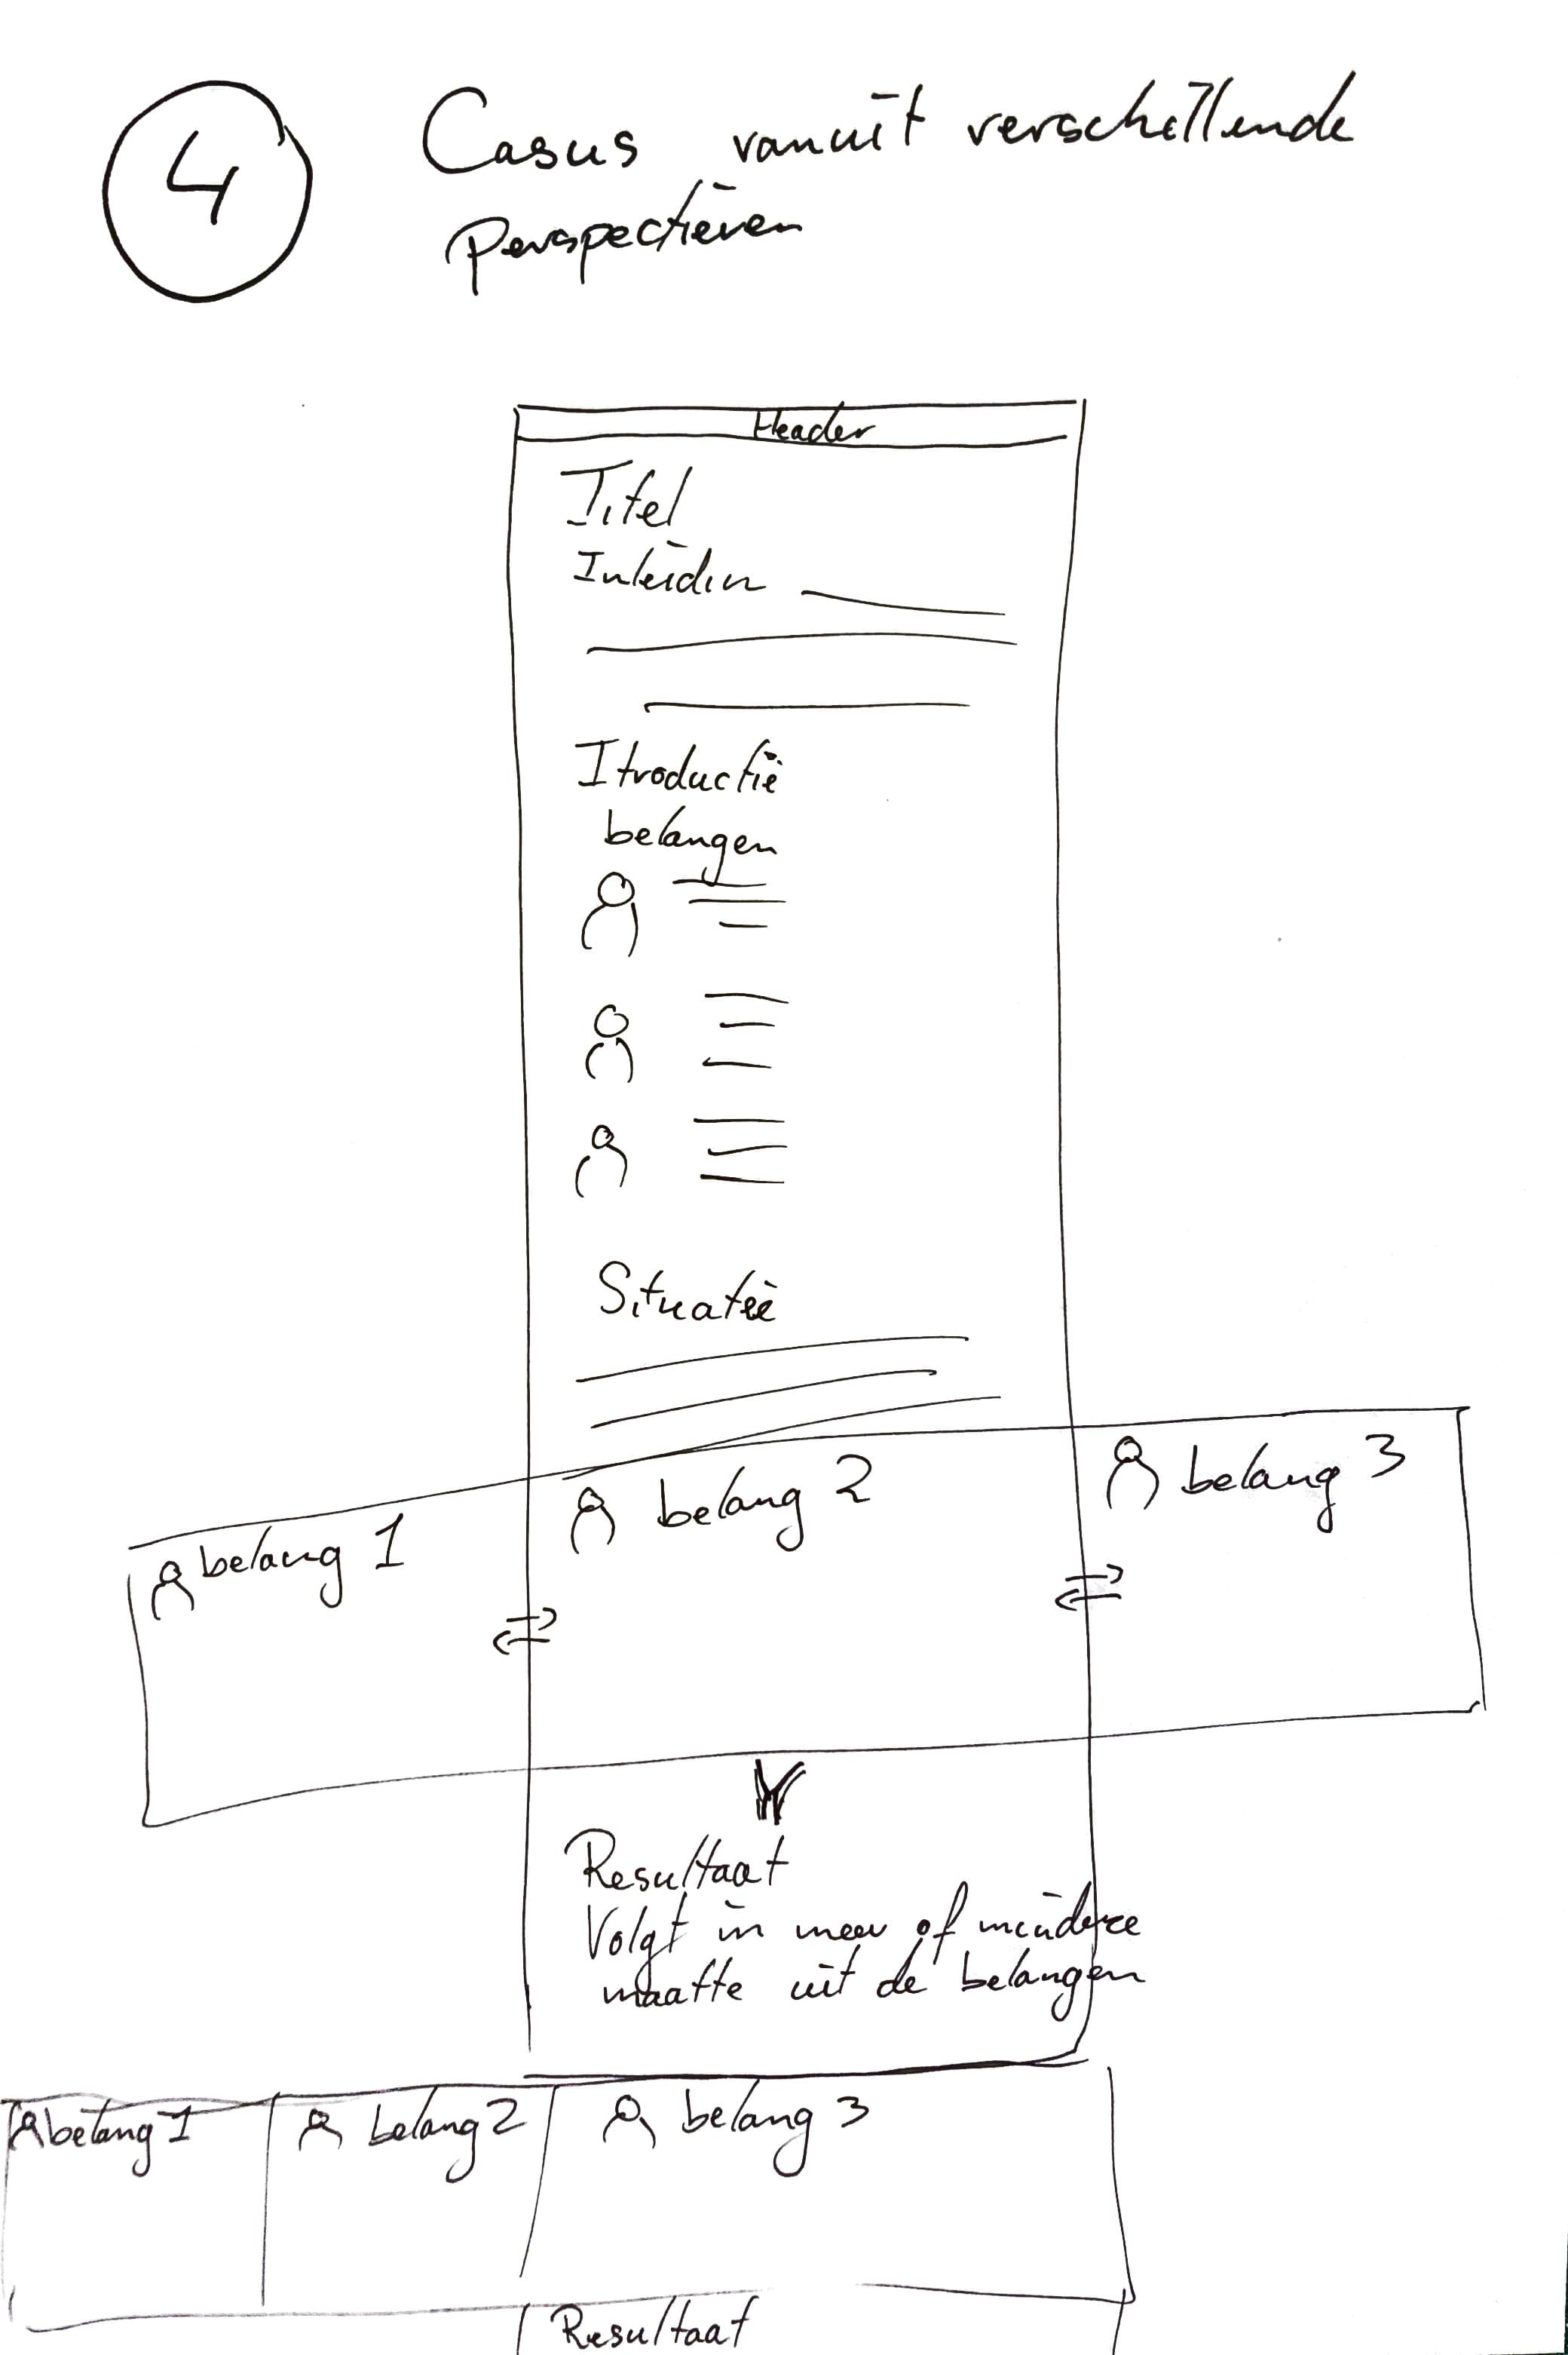 4
Casus vanuit verschillende
perspectieven
Header
Titel
Inleidin
Itroductie
belangen
Situatie
belang 1
belang 2
belang 3
Resultaat
Volgt in meer of mindere
maatte uit de belangen
belang 1
belang 2
belang 3
Resultaat